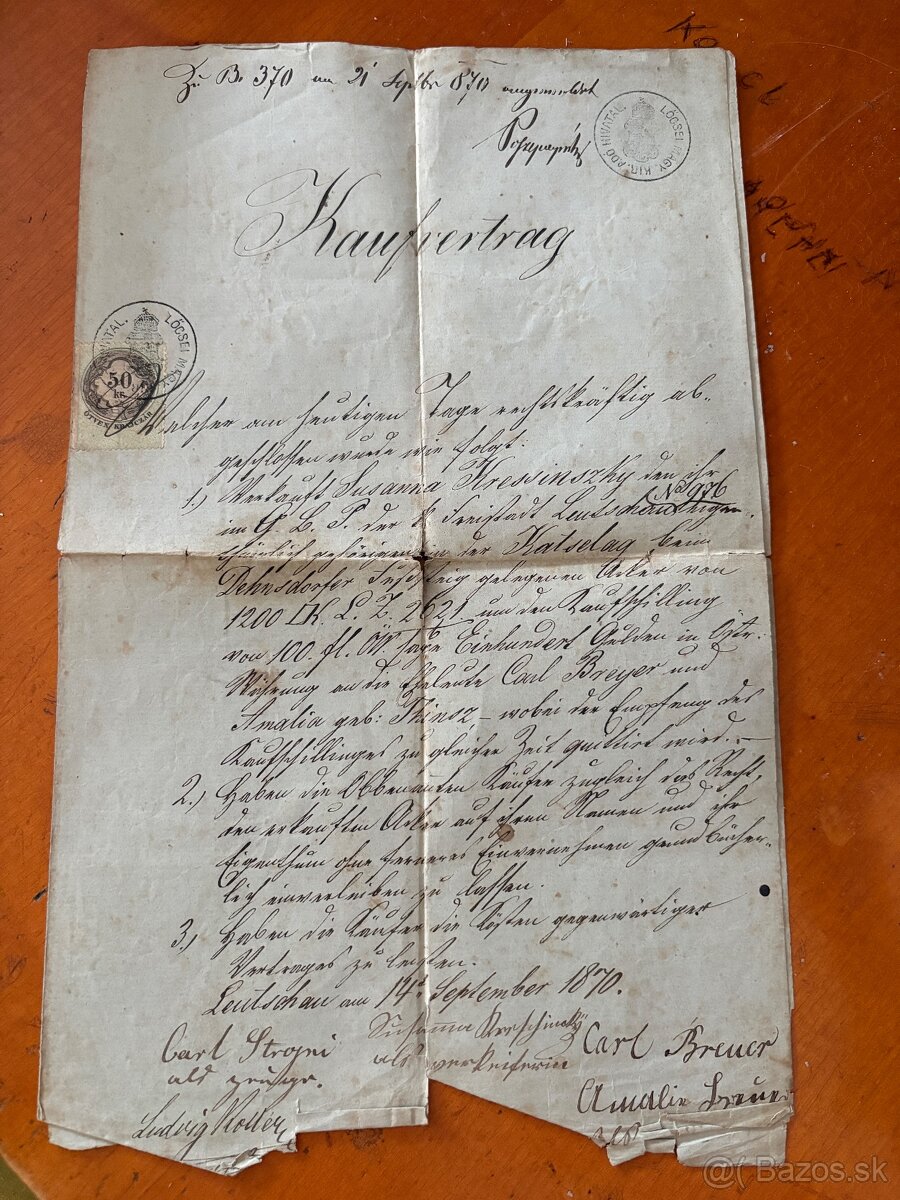 Zu B. 370 am 21 Septbr 870 angemeldet
LŐCSEI MAGY. KIR. ADÓ HIVATAL.
Kaufvertrag
LŐCSEI MAGY
50 kr.
ÖTVEN KRAJCZÁR
Welcher am heutigen Tage rechtskräftig ab-
geschlossen wurde wie folgt:
1.) Verkauft Susanna Kressinszky den ihr
No 976
im G. B. P. der k. Freistadt Leutschau eigen-
thümlich gehörigen in der Katselag beim
Dehnsdorfer Fußsteig gelegenen Acker von
1200 □K. L. Z. 2621 um den Kaufschilling
von 100. fl. ÖW. sage Einhundert Gulden in Östr.
Währung an die Eheleute Carl Breyer und
Amalia geb: Thinsz, – wobei der Empfang des
Kaufschillinges zu gleicher Zeit quittirt wird. –
2.) Haben die Obbenannten Käufer zugleich das Recht,
den erkauften Acker auf ihren Namen und ihr
Eigenthum ohne ferneres Einvernehmen grundbücher-
lich einverleiben zu lassen.
3.) Haben die Käufer die Kösten gegenwärtiges
Vertrages zu leisten.
Leutschau am 14t September 1870.
Carl Stropi
als zeuge.
Susanna Kreschinszky
als verkeiferin
Carl Breuer
Amalie Breuer
Ludwig Koller
Bazos.sk